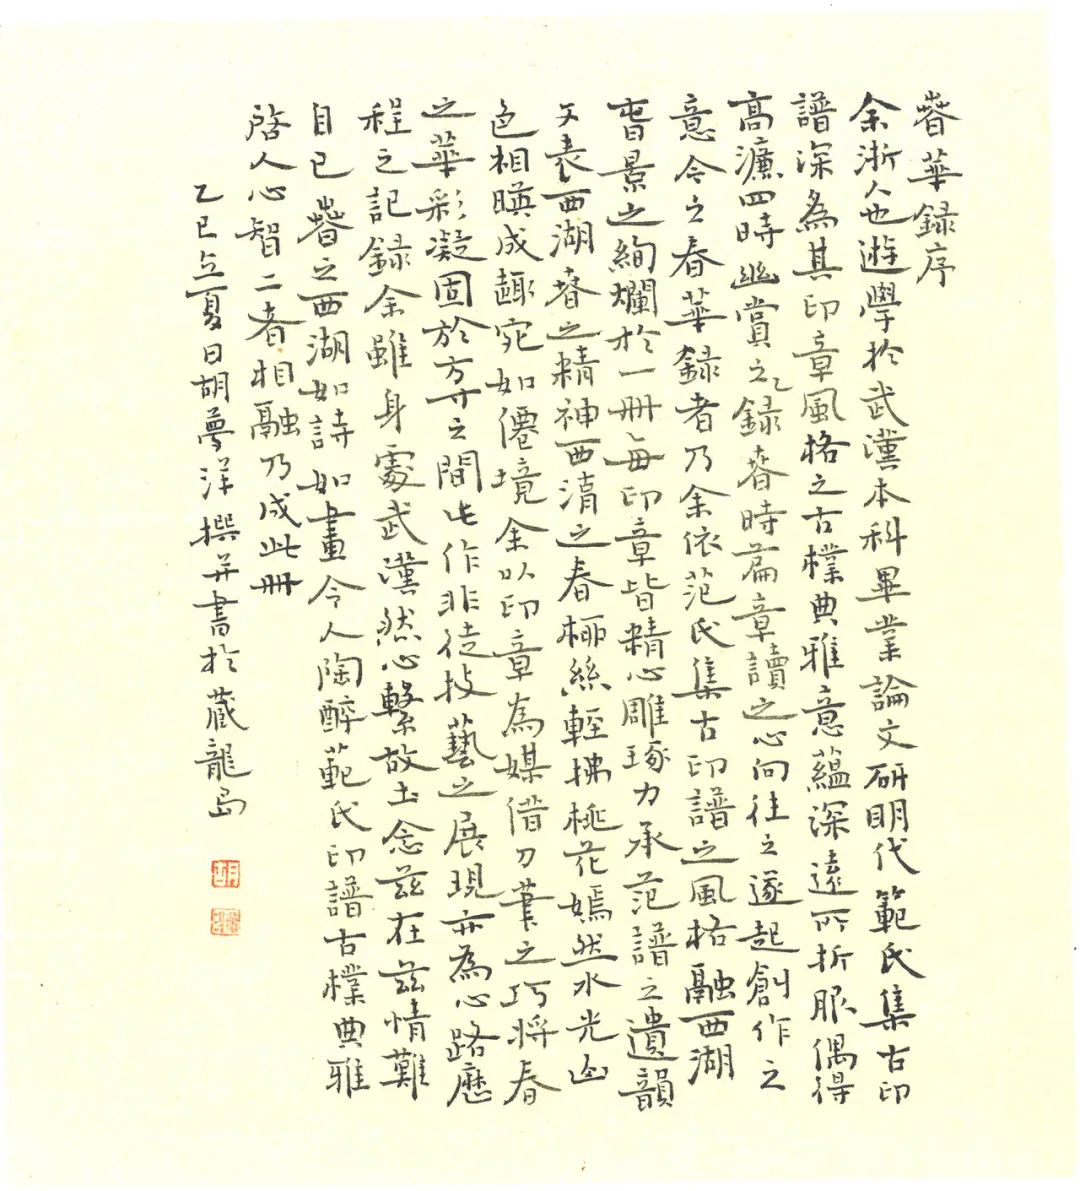 萅華録序
余浙人也遊學於武漢本科畢業論文研明代範氏集古印
譜深為其印章風格之古樸典雅意蘊深遠所折服偶得
高濂四時幽賞之録春時篇章讀之心向往之遂起創作之
意今之春華録者乃余依范氏集古印譜之風格融西湖
春景之絢爛於一冊每印章皆精心雕琢力承范譜之遺韻
文表西湖春之精神西湑之春柳絲輕拂桃花嫣然水光山
色相暎成趣宛如僊境余以印章為媒借刀筆之巧將春
之華彩凝固於方寸之間此作非徒技藝之展現亦為心路歷
程之記録余雖身處武漢然心繫故土念茲在茲情難
自已萅之西湖如詩如畫令人陶醉範氏印譜古樸典雅
啓人心智二者相融乃成此冊
乙巳立夏日胡夢洋撰并書於藏龍島
胡